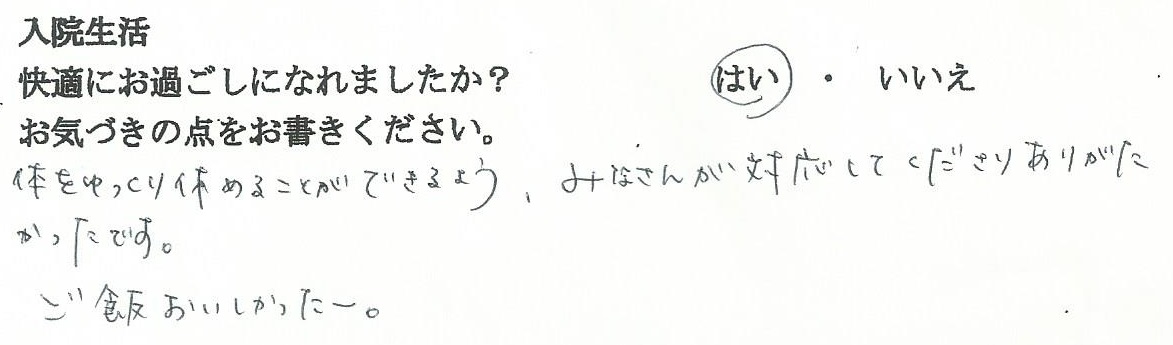 入院生活
快適にお過ごしになれましたか？ はい ・ いいえ
お気づきの点をお書きください。
体をゆっくり休めることができるよう、みなさんが対応してくださりありがた
かったです。
ご飯おいしかったー。